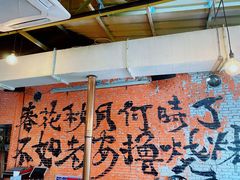 春花秋月何時了
不如老安擼燒烤